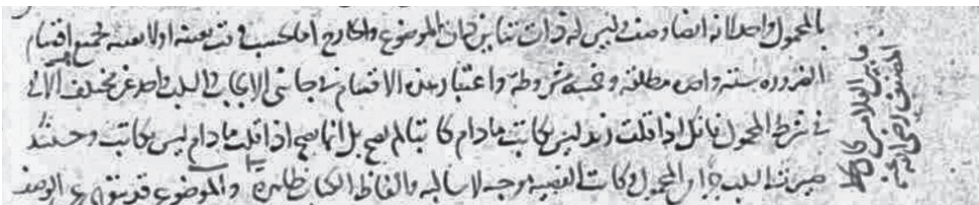 بالمحمول واحد لانه ايضا وصف وليس له ذات تباين ذات الموضوع والخارج اما بحسب وقت بعينه اولا بعينه فجميع اقسام
الضرورة ستة واحدة مطلقة وخمسة مشروطة واعتبار هذه الاقسام في جانبي الايجاب والسلب واحد غير مختلف الا
في شرط المحمول فانك اذا قلت زيد ليس بكاتب مادام كاتبا لم يصح بل انما يصح اذا قلت مادام ليس بكاتب وحينئذ
صيرت السلب جزا من المحمول وكانت القضية موجبة لا سالبة والفاظ الكتاب ظاهرة والموضوع قد يتعرى عن الوصف